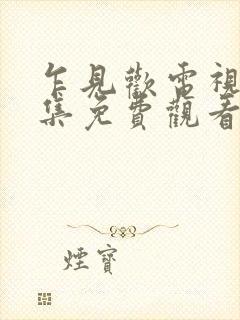 乍見歡電視
集免費觀看
煙寶